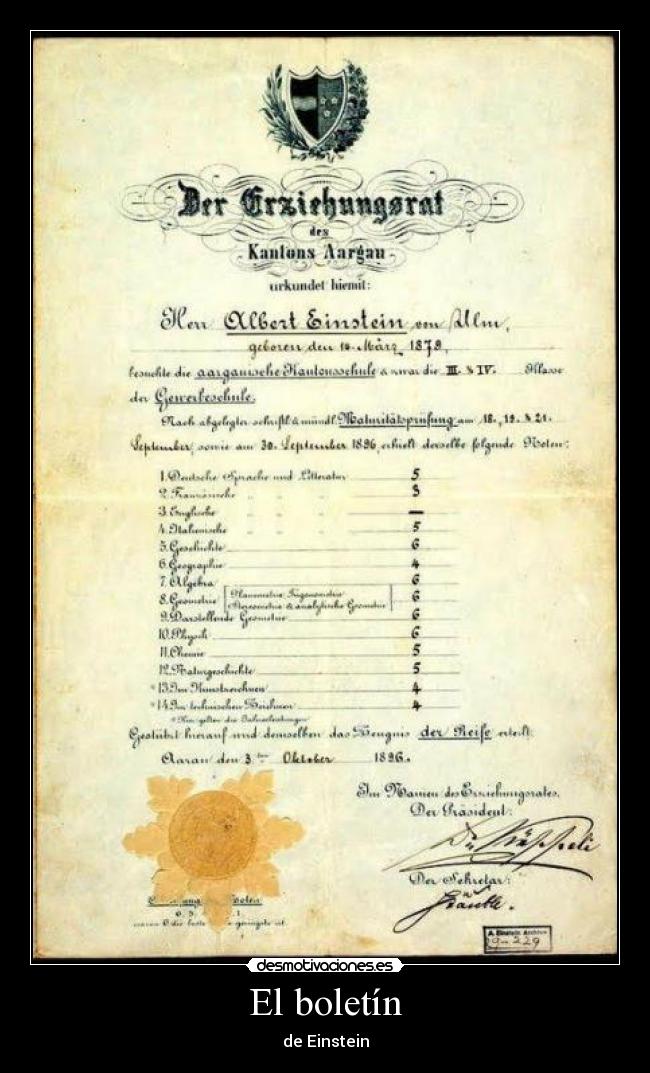 Der Erziehungsrat
des
Kantons Aargau
urkundet hiemit:
Herr Albert Einstein von Ulm,
geboren den 14. März 1879,
besuchte die aargauische Kantonsschule & zwar die III. & IV. Klasse
der Gewerbeschule.
Nach abgelegter schriftl. & mündl. Maturitätsprüfung am 18., 19. & 21.
September, sowie am 30. September 1896, erhielt derselbe folgende Noten:
1. Deutsche Sprache und Litteratur 5
2. Französische " " " 3
3. Englische " " " —
4. Italienische " " " 5
5. Geschichte 6
6. Geographie 4
7. Algebra 6
8. Geometrie [Planimetrie, Trigonometrie 6
Stereometrie & analytische Geometrie]
9. Darstellende Geometrie 6
10. Physik 6
11. Chemie 5
12. Naturgeschichte 5
* 13. Im Kunstzeichnen 4
* 14. Im technischen Zeichnen 4
* Hier gelten die Jahresleistungen
Gestützt hierauf wird demselben das Zeugnis der Reife erteilt.
Aarau den 3. ten Oktober 1896.
Im Namen des Erziehungsrates,
Der Präsident:
Der Sekretär:
A. Einstein Archive
desmotivaciones.es
El boletín
de Einstein